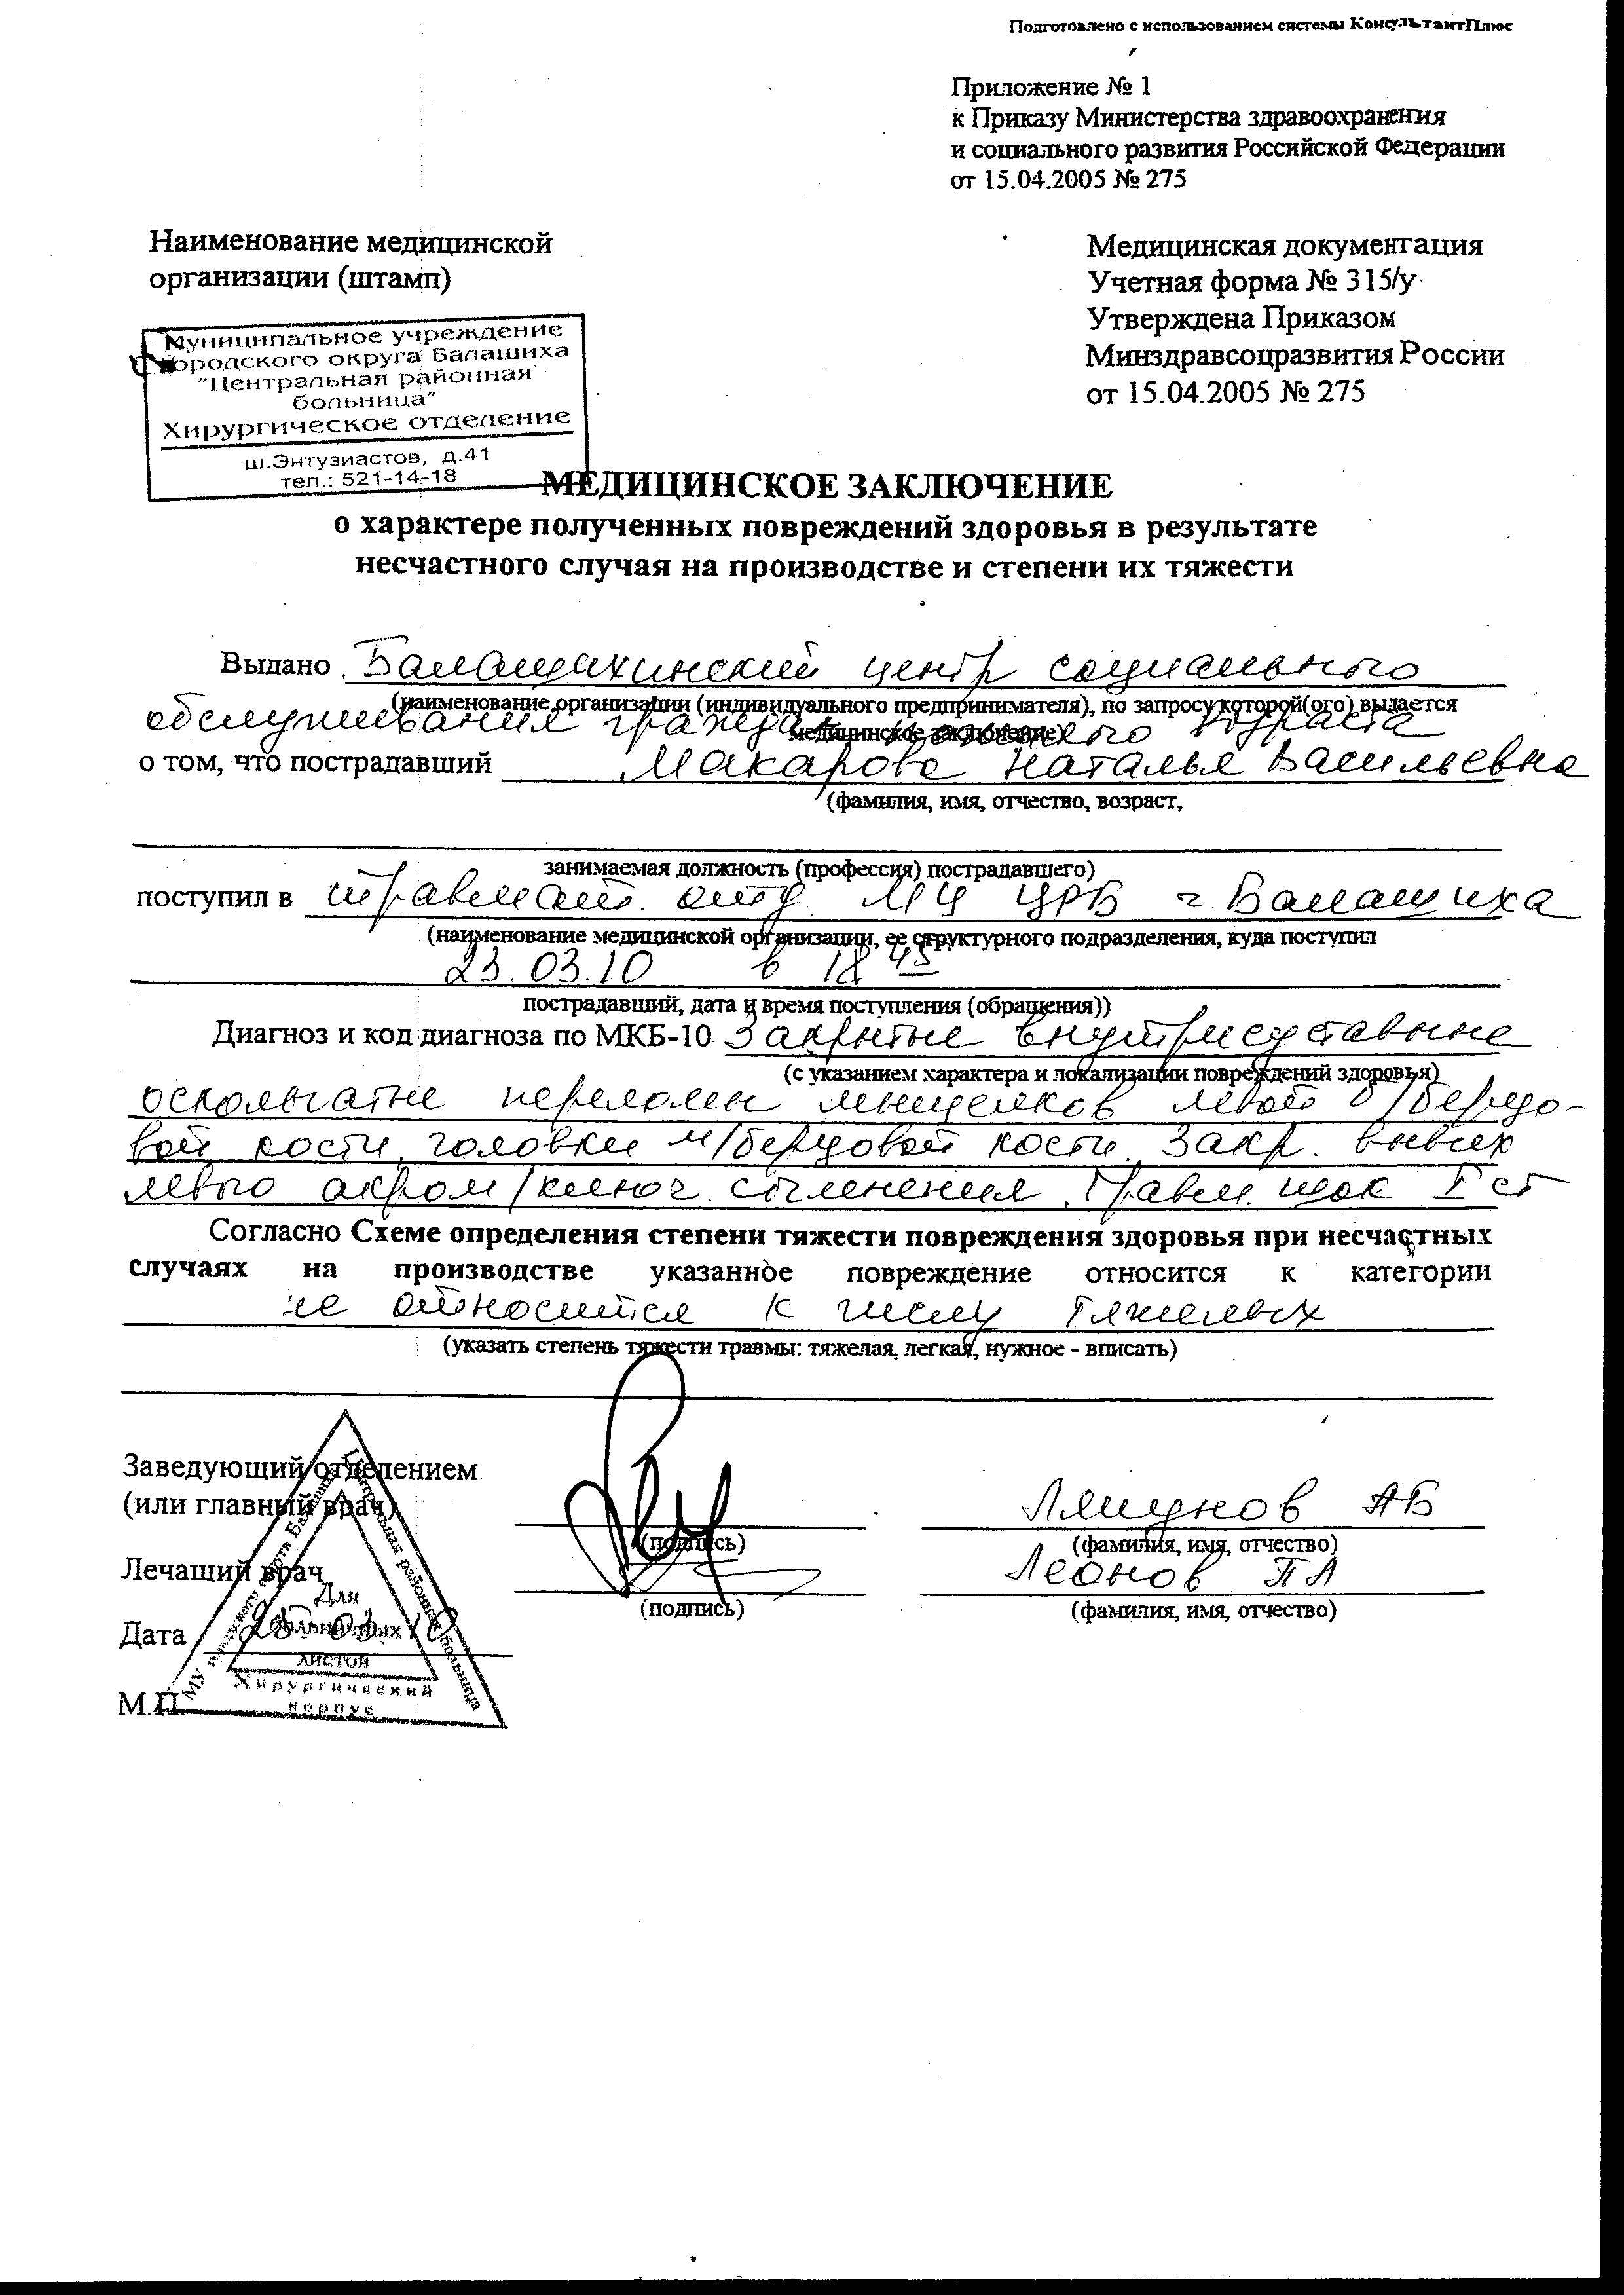 Подготовлено с использованием системы КонсультантПлюс
Приложение № 1
к Приказу Министерства здравоохранения
и социального развития Российской Федерации
от 15.04.2005 № 275
Наименование медицинской
организации (штамп)
Медицинская документация
Учетная форма № 315/у
Утверждена Приказом
Минздравсоцразвития России
от 15.04.2005 № 275
Муниципальное учреждение
городского округа Балашиха
"Центральная районная
больница"
Хирургическое отделение
ш.Энтузиастов, д.41
тел.: 521-14-18
МЕДИЦИНСКОЕ ЗАКЛЮЧЕНИЕ
о характере полученных повреждений здоровья в результате
несчастного случая на производстве и степени их тяжести
Выдано Балашихинский центр социального
(наименование организации (индивидуального предпринимателя), по запросу которой(ого) выдается
обслуживания граждан пожилого возраста
медицинское заключение)
о том, что пострадавший Макарова Наталья Васильевна
(фамилия, имя, отчество, возраст,
занимаемая должность (профессия) пострадавшего)
поступил в травмат. отд МУ ЦРБ г. Балашиха
(наименование медицинской организации, ее структурного подразделения, куда поступил
23.03.10 в 18 45
пострадавший, дата и время поступления (обращения))
Диагноз и код диагноза по МКБ-10 Закрытые внутрисуставные
(с указанием характера и локализации повреждений здоровья)
оскольчатые переломы мыщелков левой б/берцо-
вой кости, головки м/берцовой кости. Закр. вывих
левого акром/ключ. сочленения. Травм. шок I ст
Согласно Схеме определения степени тяжести повреждения здоровья при несчастных
случаях на производстве указанное повреждение относится к категории
не относится к числу тяжелых
(указать степень тяжести травмы: тяжелая, легкая, нужное - вписать)
Заведующий отделением
(или главный врач) Ляшунов АБ
(подпись) (фамилия, имя, отчество)
Лечащий врач Леонов ПЛ
(подпись) (фамилия, имя, отчество)
Дата 25 03 10
М.П.
МУ городского округа Балашиха Центральная районная больница
Для
больничных
листов
Хирургический
корпус